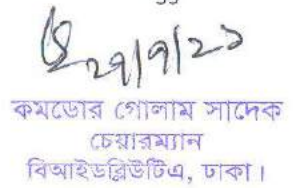 ২৭/৭/২১
কমডোর গোলাম সাদেক
চেয়ারম্যান
বিআইডব্লিউটিএ, ঢাকা।